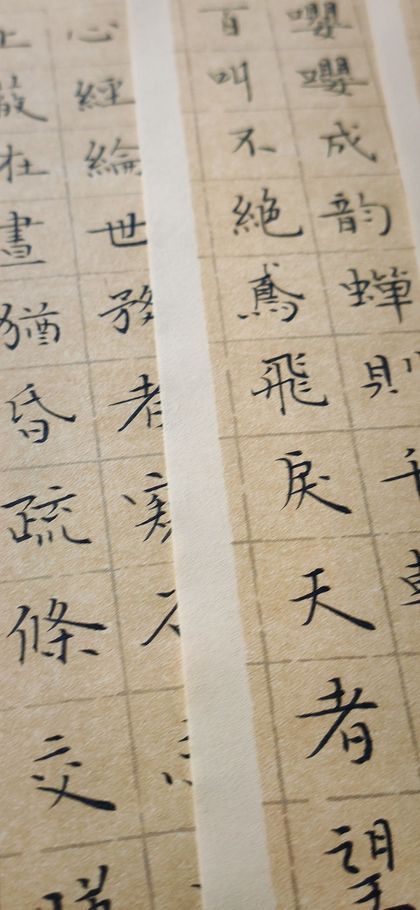 嚶嚶成韵蟬則千
百叫不絶鳶飛戾天者望
心經綸世務者窺
上蔽在晝猶昏疏條交